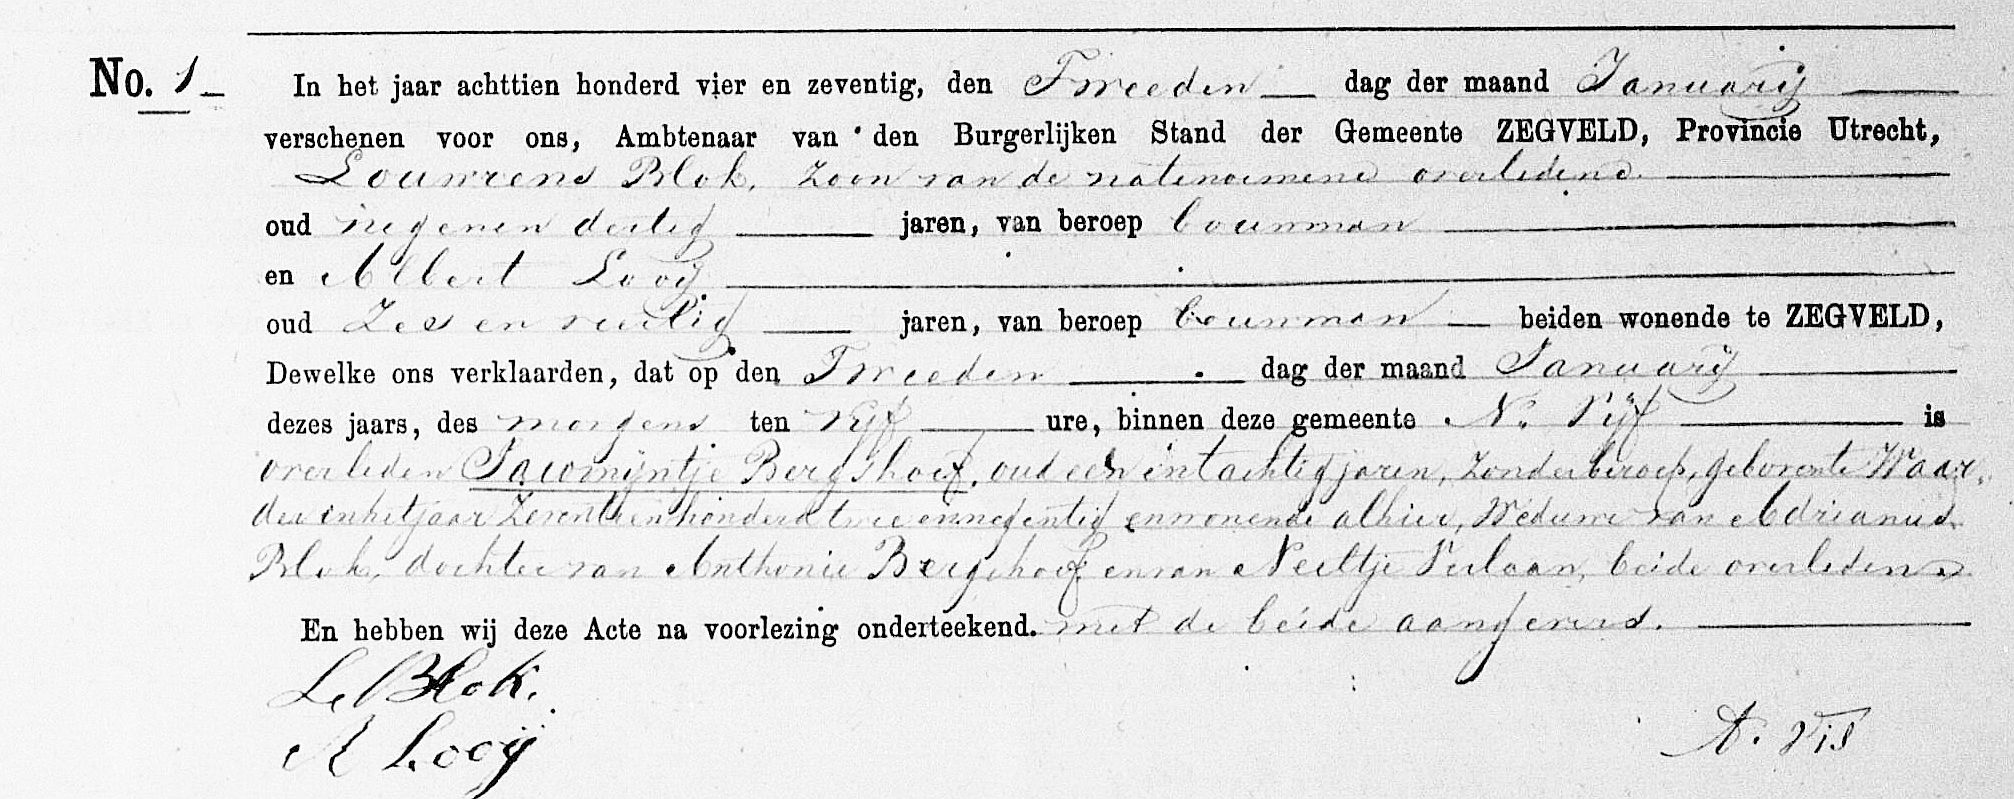 No. 1
In het jaar achttien honderd vier en zeventig, den Tweeden dag der maand January
verschenen voor ons, Ambtenaar van den Burgerlijken Stand der Gemeente ZEGVELD, Provincie Utrecht,
Louwrens Blok, zoon van de natenoemene overledene
oud negenen dertig jaren, van beroep bouwman
en Albert Looij
oud Zes en veertig jaren, van beroep bouwman beiden wonende te ZEGVELD,
Dewelke ons verklaarden, dat op den Tweeden dag der maand January
dezes jaars, des morgens ten Vijf ure, binnen deze gemeente No. Vijf is
overleden Jacomijntje Bergshoef, oud een entachtig jaren, zonder beroep, geboren te Waar
der inhetjaar Zeventienhonderd twee ennegentig enwonende alhier, Weduwe van Adrianus
Blok, dochter van Anthonie Bergshoef envan Neeltje Verlaan, beide overleden
En hebben wij deze Acte na voorlezing onderteekend. met de beide aangevers.
L. Blok.
A Looij
A. Vis